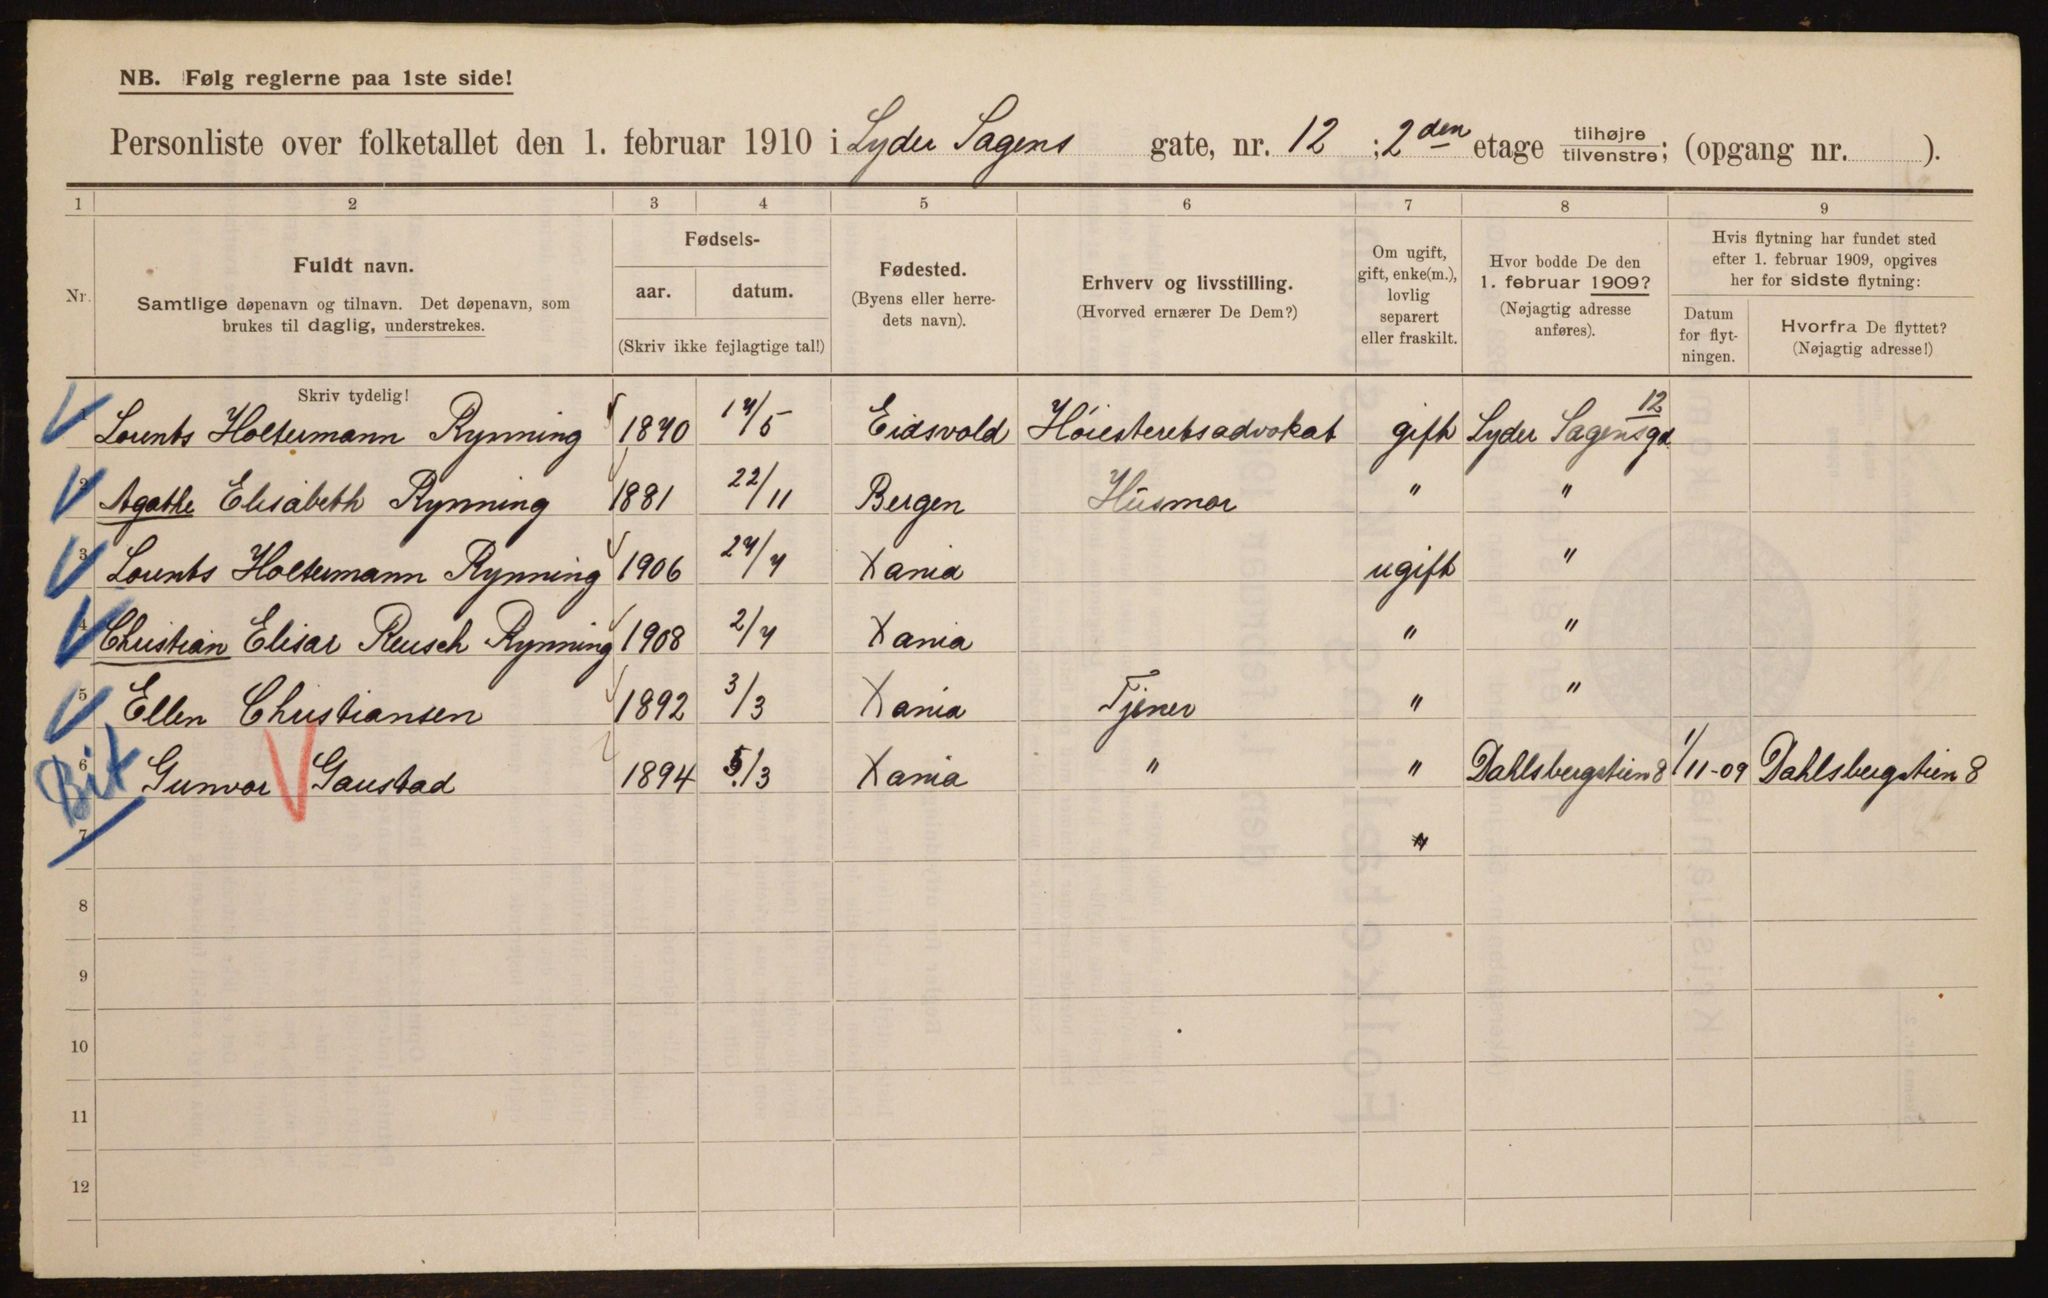 NB. Følg reglerne paa 1ste side!
Personliste over folketallet den 1. februar 1910 i Lyder Sagens gate, nr. 12 ; 2den etage tilhøjre/tilvenstre; (opgang nr. ).
1 2 3 4 5 6 7 8 9
Nr.
Fuldt navn.
Samtlige døpenavn og tilnavn. Det døpenavn, som
brukes til daglig, understrekes.
Skriv tydelig!
Fødsels-
aar. datum.
(Skriv ikke fejlagtige tal!)
Fødested.
(Byens eller herre-
dets navn).
Erhverv og livsstilling.
(Hvorved ernærer De Dem?)
Om ugift,
gift, enke(m.),
lovlig
separert
eller fraskilt.
Hvor bodde De den
1. februar 1909?
(Nøjagtig adresse
anføres).
Hvis flytning har fundet sted
efter 1. februar 1909, opgives
her for sidste flytning:
Datum
for flyt-
ningen.
Hvorfra De flyttet?
(Nøjagtig adresse!)
1 Lounts Holtermann Rynning 1870 14/5 Eidsvold Høiesteretsadvokat gift Lyder Sagensgd. 12
2 Agathe Elisabeth Rynning 1881 22/11 Bergen Husmor " "
3 Lounts Holtermann Rynning 1906 24/4 Xania ugift "
4 Christian Elisar Reusch Rynning 1908 2/4 Xania " "
5 Ellen Christiansen 1892 3/3 Xania Tjener " "
Bit
6 Gunvor Gaustad 1894 5/3 Xania " " Dahlsbergstien 8 1/11-09 Dahlsbergstien 8
7 "
8
9
10
11
12